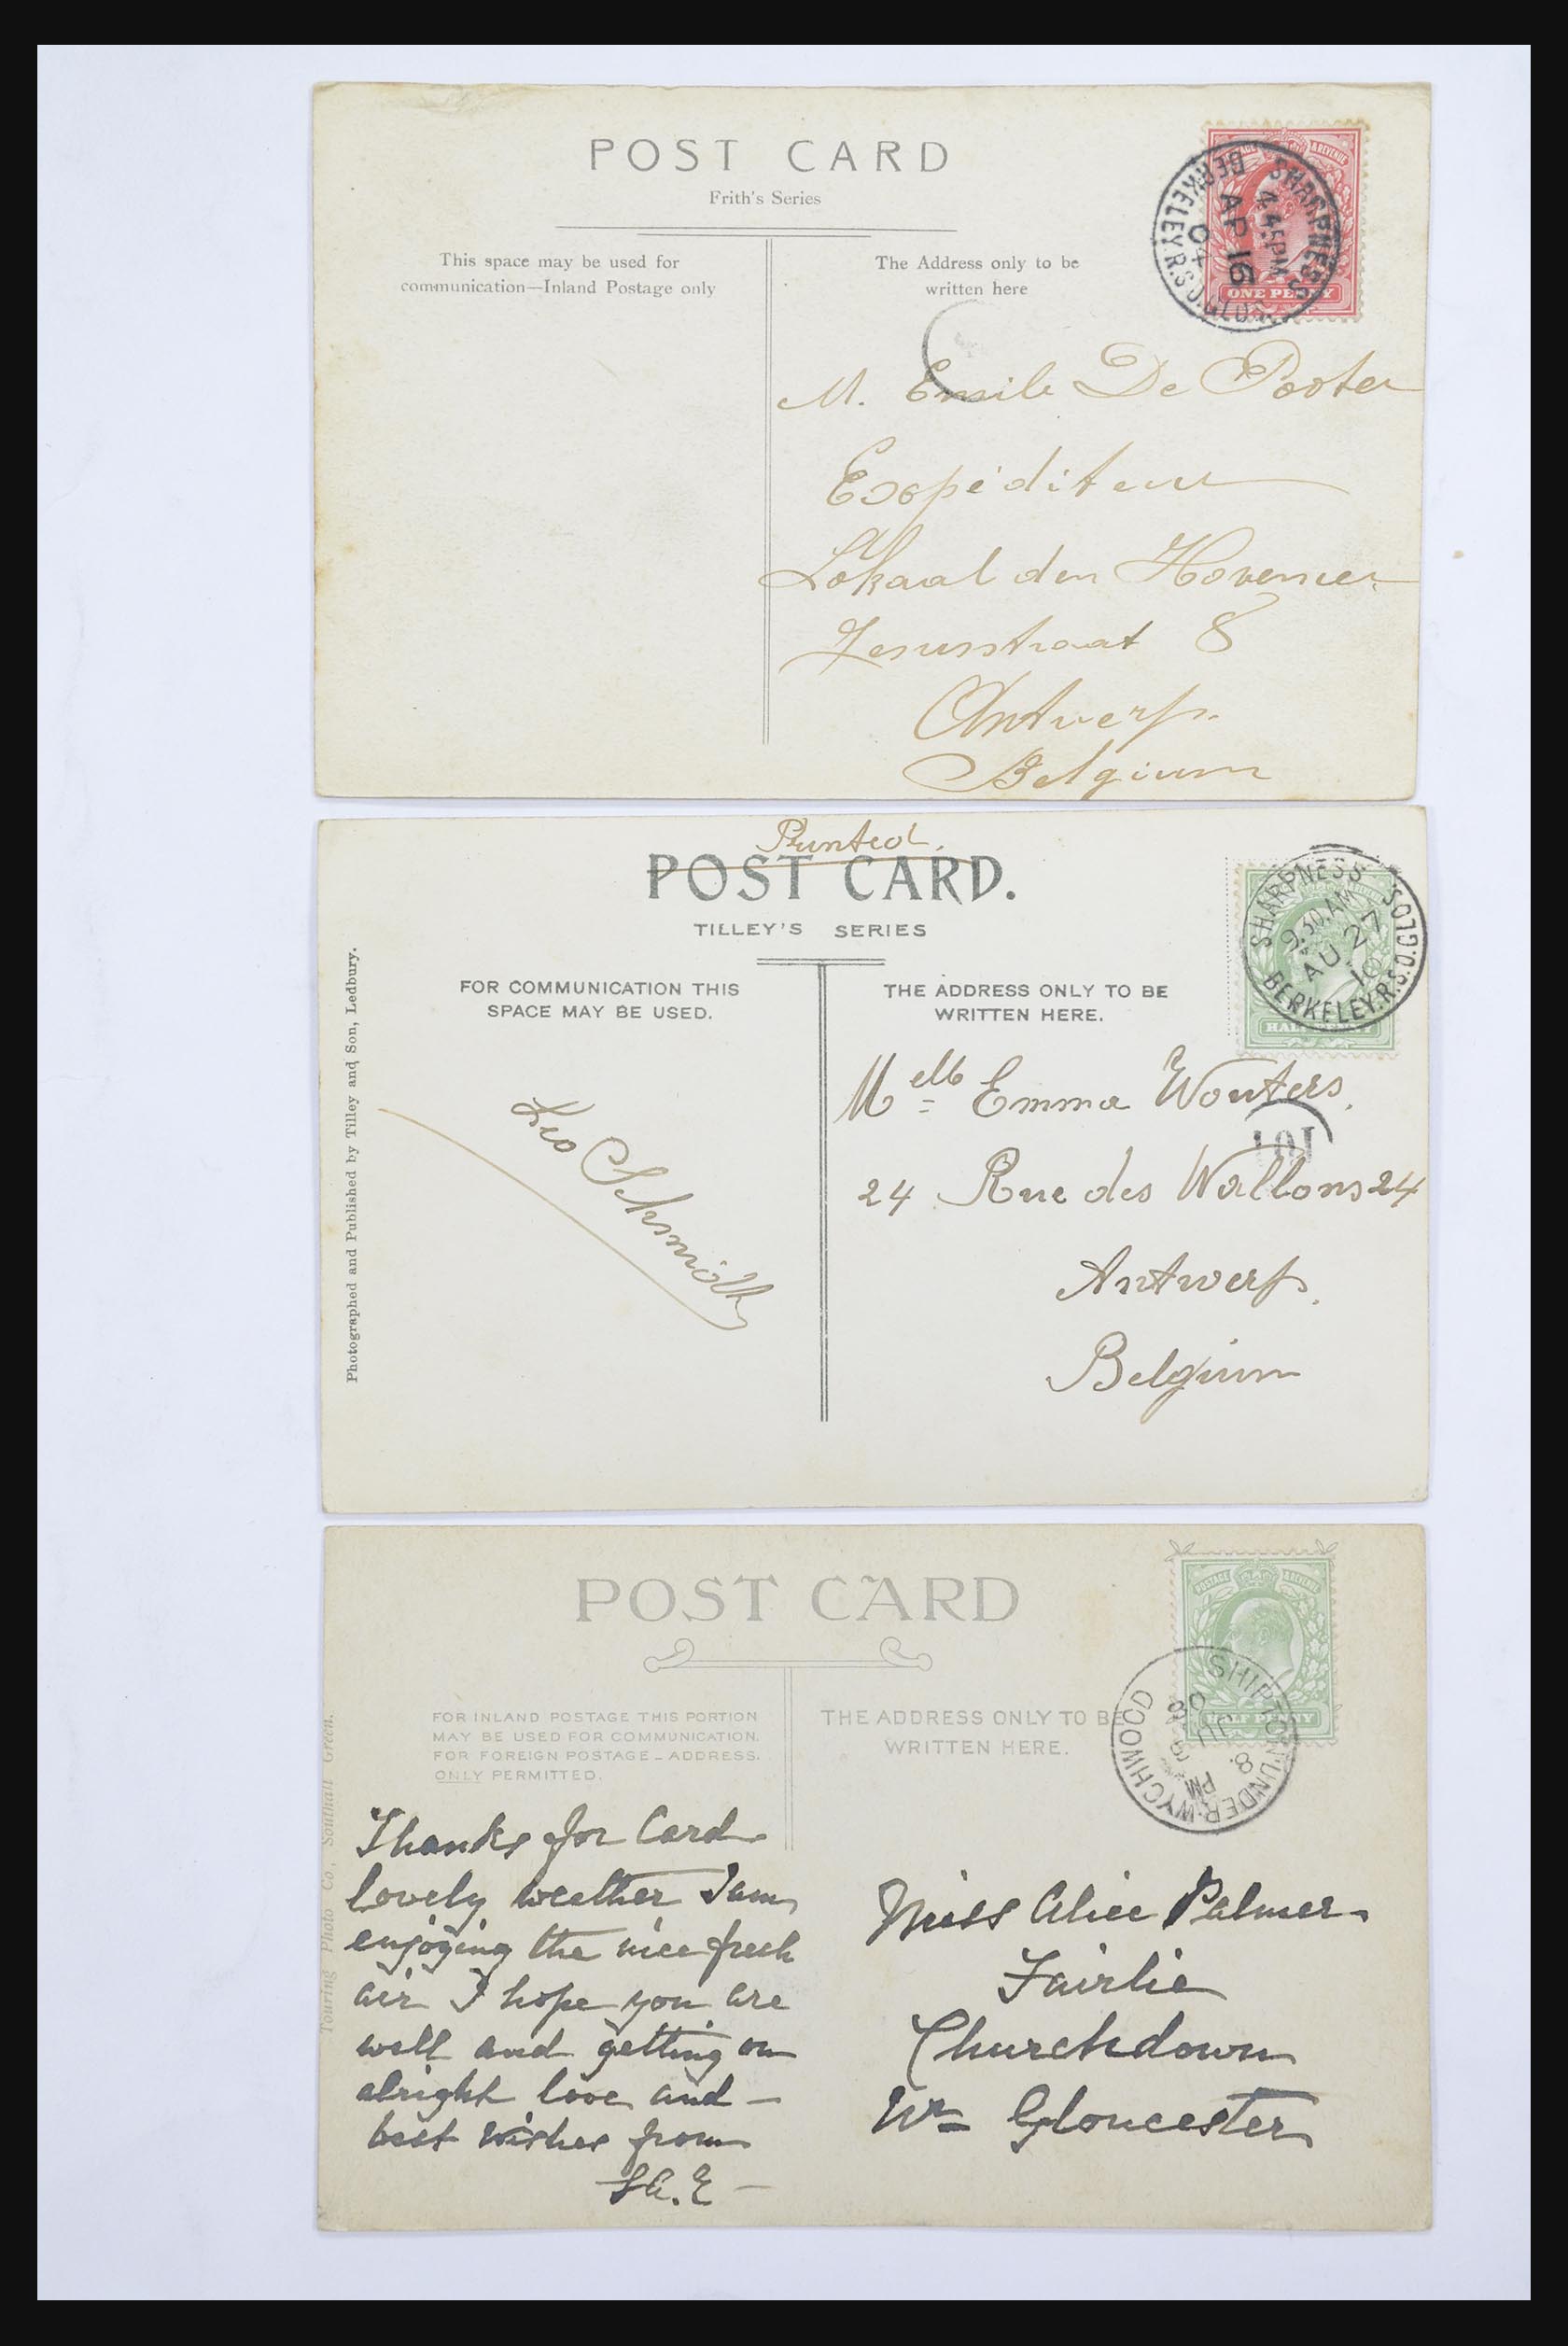 POST CARD
Frith's Series
This space may be used for
communication—Inland Postage only
The Address only to be
written here
SHARPNESS S.O.
4.45PM
AP 16
04
BERKELEY.R.S.O.GLOS.
ONE PENNY
M. Emile De Pooter
Expéditeur
Lokaal den Hovenier
Jesusstraat 8
Antwerp.
Belgium
Printed.
POST CARD.
TILLEY'S SERIES
FOR COMMUNICATION THIS
SPACE MAY BE USED.
THE ADDRESS ONLY TO BE
WRITTEN HERE.
SHARPNESS
9.30.AM
AU 27
10
BERKELEY.R.S.O.GLOS.
HALFPENNY
Photographed and Published by Tilley and Son, Ledbury.
Leo Schmidt
Melle Emma Wouters.
101
24 Rue des Wallons 24
Antwerp.
Belgium
POST CARD
POSTAGE & REVENUE
HALF PENNY
SHIPTON.UNDER.WYCHWOOD
8 PM
JU
08
FOR INLAND POSTAGE THIS PORTION
MAY BE USED FOR COMMUNICATION.
FOR FOREIGN POSTAGE - ADDRESS.
ONLY PERMITTED.
THE ADDRESS ONLY TO BE
WRITTEN HERE.
Touring Photo Co, Southall Green.
Thanks for Card
lovely weather I am
enjoying the nice fresh
air I hope you are
well and getting on
alright love and —
best wishes from
Miss Alice Palmer
Fairlie
Churchdown
Nr Gloucester